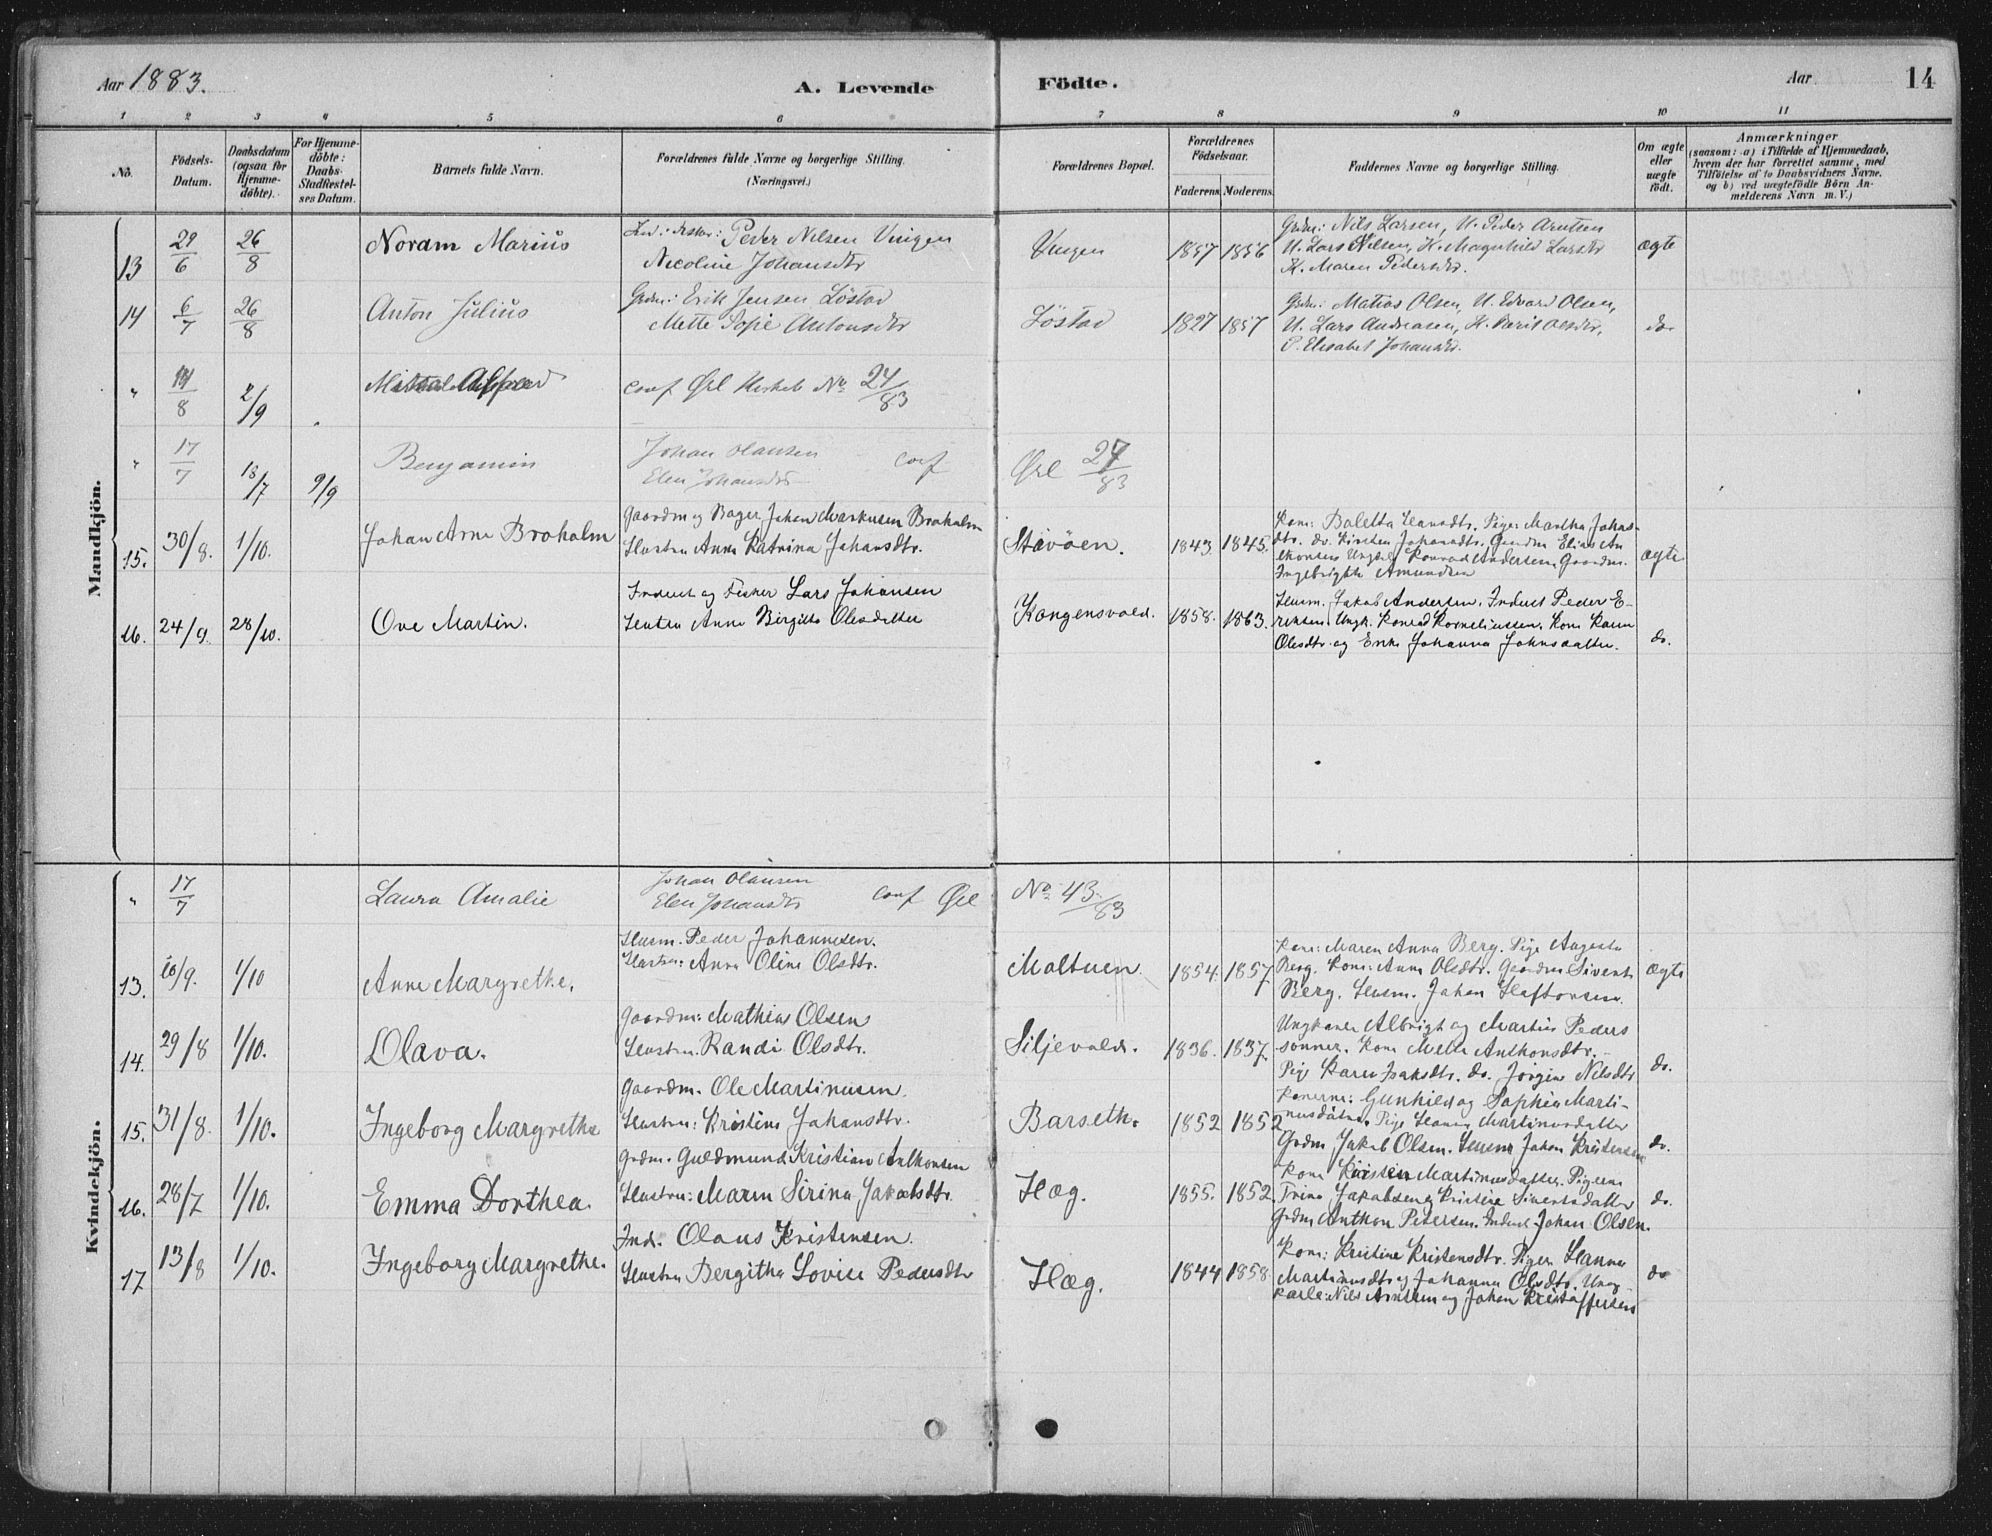 Aar 1883.
A. Levende
Födte.
Aar
14
1 2 3 4 5 6 7 8 9 10 11
No.
Födsels-Datum.
Daabsdatum (ogsaa for Hjemme-döbte).
For Hjemme-döbte: Daabs-Stadfæstel-ses Datum.
Barnets fulde Navn.
Forældrenes fulde Navne og borgerlige Stilling.
(Næringsvei.)
Forældrenes Bopæl.
Forældrenes Födselsaar.
Faderens. Moderens.
Faddernes Navne og borgerlige Stilling.
Om ægte eller uægte födt.
Anmærkninger
(saasom: a) i Tilfælde af Hjemmedaab, hvem der har forrettet samme, med Tilföielse af to Daabsvidners Navne, og b) ved uægtefödte Börn An-melderens Navn m. V.)
Mandkjön.
13 29/6 26/8 Noram Marius
Peder Nilsen Vingen
Nicoline Johansdtr
Vingen 1857 1856
Grdm: Nils Larsen, U. Peder Arntsen
U. Lars Nilsen, K. Magnhild Larsdtr
K. Maren Pedersdtr.
ægte
14 6/7 26/8 Anton Julius
Grdm: Erik Jensen Löstad
Mette Sofie Antonsdtr
Löstad 1827 1857
Grdm: Matias Olsen, U. Edvard Olsen,
U. Lars Andreasen, K. Berit Olsdtr,
P. Elisabet Johansdr.
do
" 14/8 2/9
conf Örl No 24/83
" 17/7 18/7 9/9 Benjamin
Johan Olausen
Elen Johansdtr
conf Örl 27/83
15. 30/8. 1/10. Johan Arne Broholm
Gaardm og Bager Johan Markusen Broholm
Hustru Anne Katrina Johansdtr.
Stavöen. 1843. 1845.
Kone: Boletta Hansdtr. Pige: Martha Johns-
dtr. do. Kirsten Johansdtr. Gaardm Elias An
thonsen Ungkl. Konrad Andersen, Gaardm.
Ingebrigth Amundsen
ægte
16. 24/9. 28/10. Ove Martin.
Inderst og Fisker Lars Johansen
Hustru Anne Birgitte Olesdatter
Kongensvold. 1858. 1863.
Husm. Jakob Andersen. Inderst Peder E-
riksen. Ungk. Konrad Korneliussen. Kone Karen
Olesdtr. og Enke Johanna Johnsdatter.
do.
Kvindekjön.
" 17/7 Laura Amalie
Johan Olausen
Elen Johansdtr
conf Örl No 43/83
13. 10/9. 1/10 Anne Margrethe.
Husm. Peder Johannesen.
Hustru: Anne Oline Olsdtr.
Moltuen. 1854. 1857.
Kone: Maren Anna Berg. Pige Augusta
Berg. Kone: Anne Olsdtr. Gaardm Sivert
Berg. Husm. Johan Haftorsen.
ægte
14. 29/8 1/10. Olava.
Gaardm: Mathias Olsen
Hustru. Randi Olsdtr.
Siljevold. 1836. 1837.
Ungkarle Albrigt og Martin Peders
sönner. Kone Mette Anthonsdtr.
Pige Karen Isaksdtr. do. Jörgine Nilsdtr
do.
15. 31/8. 1/10. Ingeborg Margrethe
Gaardm. Ole Martinusen.
Hustru: Kristine Johansdtr.
Barseth. 1852 1852
Konerne: Gunhild og Sophie Marti-
nusdötre, Pige Hanna Martinusdatter
Grdm Jakob Olsen. Husm Johan Kristensen
do.
16. 28/7 1/10. Emma Dorthea.
Grdm. Guldmund Kristian Anthonsen
Hustru: Maren Sirina Jakobsdtr.
Hæg. 1855. 1852.
Kone Kirsten Martinusdatter. Pigerne
Trine Jakobsen og Kristine Sivertsdatter
Grdm Anthon Petersen. Inderst Johan Olsen.
do.
17 13/8 1/10. Ingeborg Margrethe.
Ind. Olaus Kristensen.
Hustru Bergitha Lovise Pedersdtr
Hæg. 1844 1858
Kone: Kristine Kristensdtr. Piger Hanna
Martinusdtr og Johanna Olsdtr. Ung
karle: Nils Arntsen og Johan Kristoffersen
do